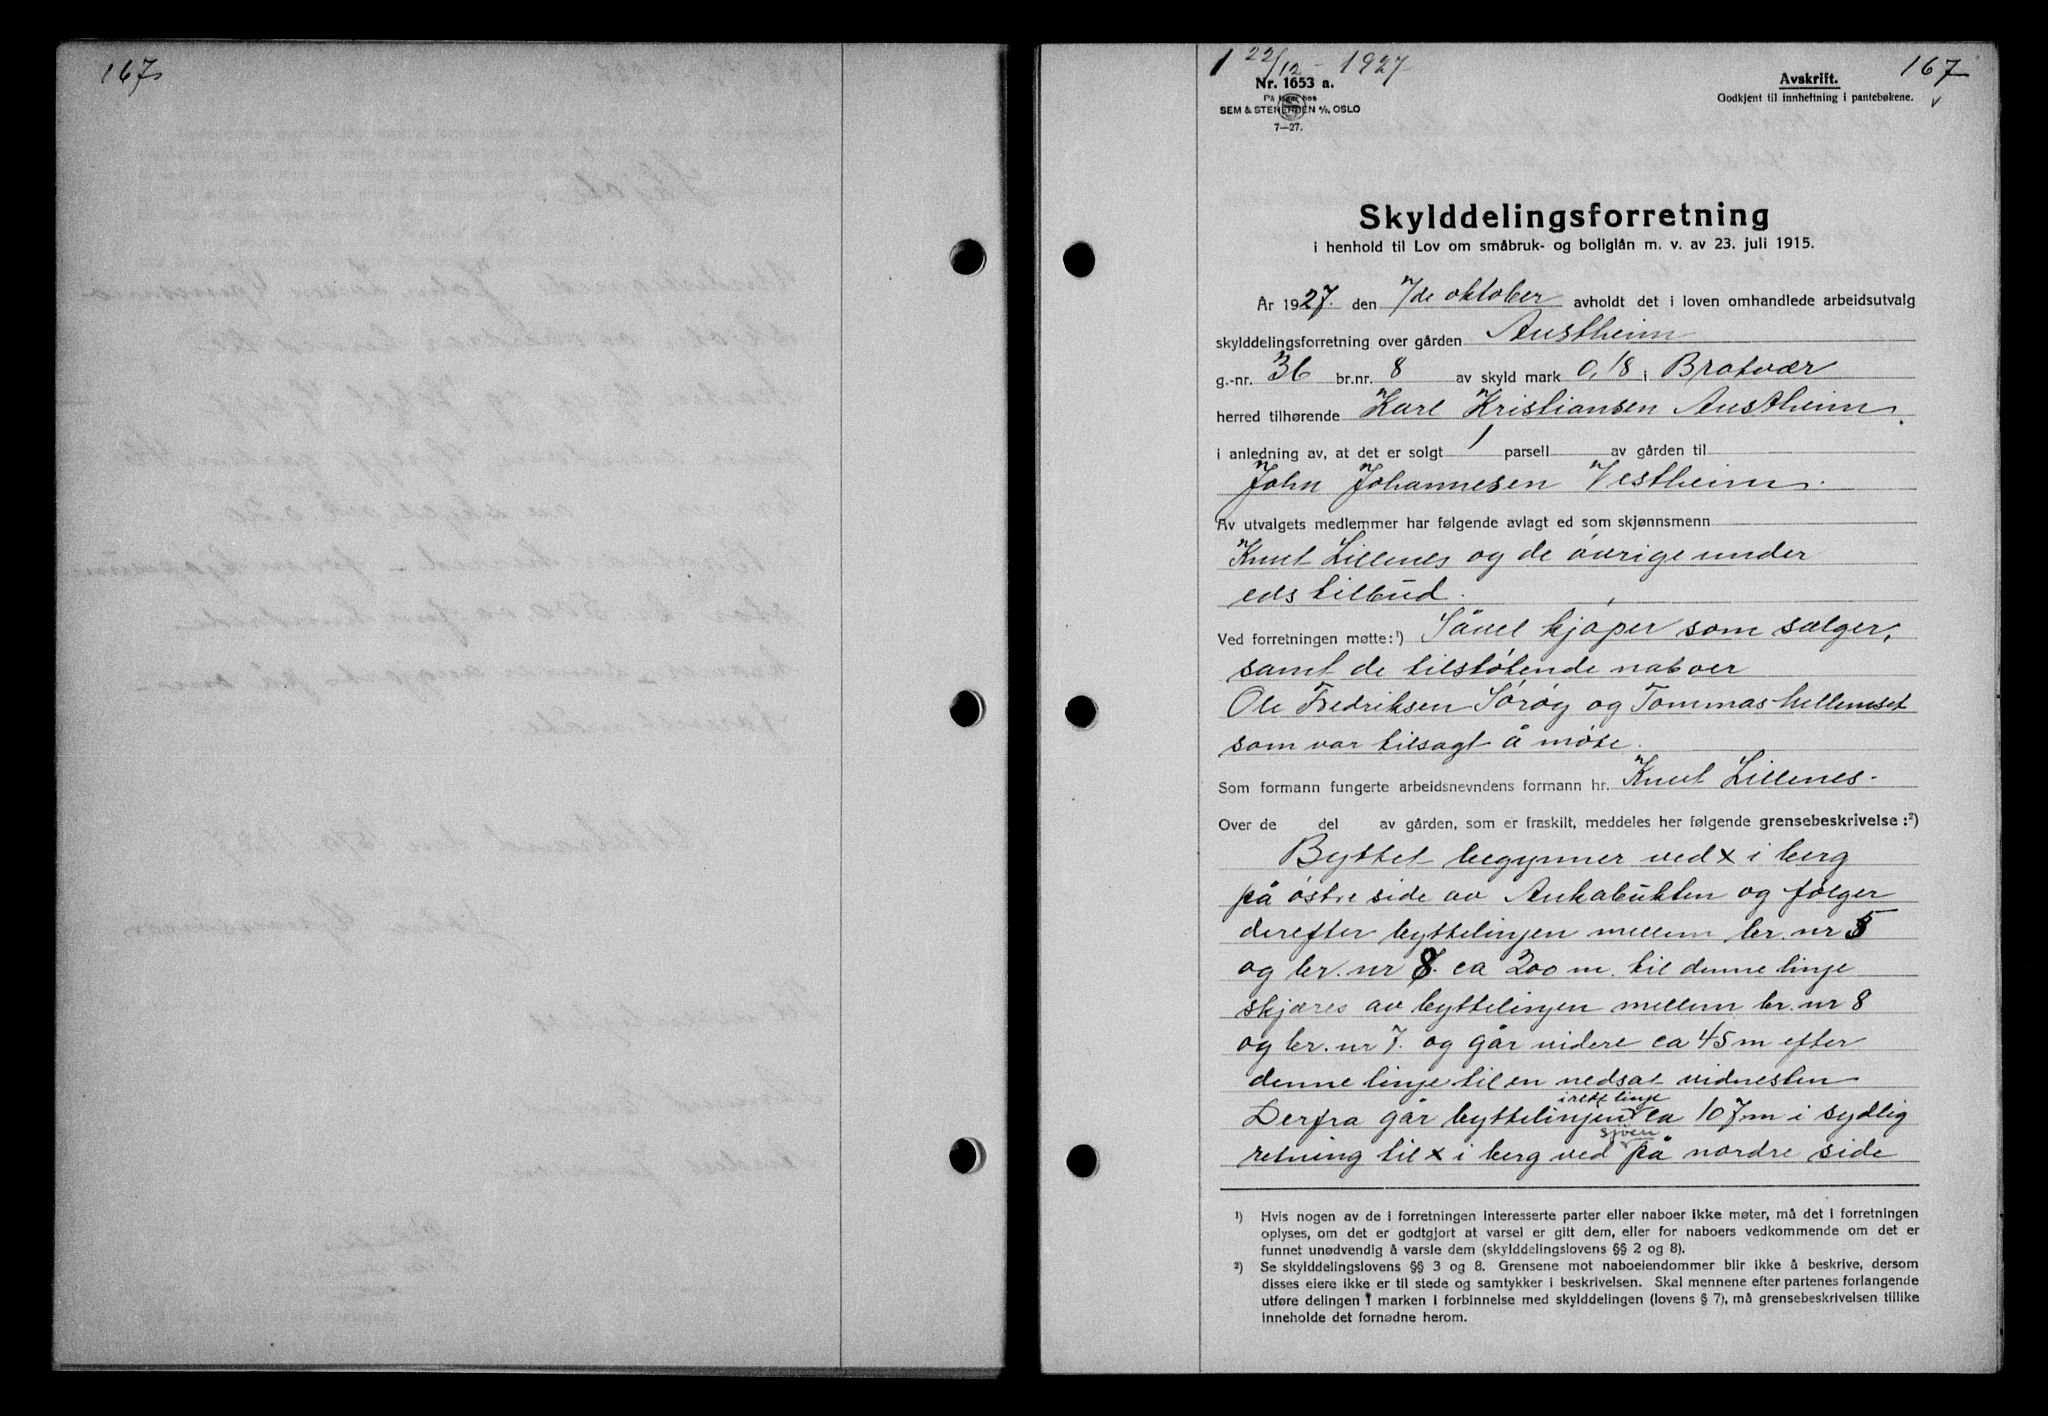 167
1 22/12 - 1927
Nr. 1653 a.
På lager hos
SEM & STENERSEN A/S, OSLO
7—27.
Avskrift.
Godkjent til innheftning i pantebøkene.
167
Skylddelingsforretning
i henhold til Lov om småbruk- og boliglån m. v. av 23. juli 1915.
År 1927. den 7/de oktober avholdt det i loven omhandlede arbeidsutvalg
skylddelingsforretning over gården Austheim
g.-nr. 36 br.nr. 8 av skyld mark 0,18 i Bratvær
herred tilhørende Karl Kristiansen Austheim
i anledning av, at det er solgt 1 parsell av gården til
John Johannesen Vestheim.
Av utvalgets medlemmer har følgende avlagt ed som skjønnsmenn
Knut Lillenes og de øvrige under
eds tilbud.
Ved forretningen møtte:¹) Såvel kjøper som sælger,
samt de tilstøtende naboer
Ole Fredriksen Sørøy og Tommas
som var tilsagt å møte.
Som formann fungerte arbeidsnevndens formann hr. Knut Lillenes.
Over de del av gården, som er fraskilt, meddeles her følgende grensebeskrivelse:²)
Byttet begynner ved x i berg
på østre side av Ankabukten og følger
derefter byttelinjen mellem br. nr 5
og br. nr 8. ca 200 m. til denne linje
skjæres av byttelinjen mellem br. nr 8
og br. nr 7. og går videre ca 45 m efter
denne linje til en nedsat vidnesten
i rett linje
Derfra går byttelinjen ca 107 m i sydlig
sjøen
retning til x i berg ved på nordre side
¹) Hvis nogen av de i forretningen interesserte parter eller naboer ikke møter, må det i forretningen
oplyses, om det er godtgjort at varsel er gitt dem, eller for naboers vedkommende om det er
funnet unødvendig å varsle dem (skylddelingslovens §§ 2 og 8).
²) Se skylddelingslovens §§ 3 og 8. Grensene mot naboeiendommer blir ikke å beskrive, dersom
disses eiere ikke er til stede og samtykker i beskrivelsen. Skal mennene efter partenes forlangende
utføre delingen i marken i forbinnelse med skylddelingen (lovens § 7), må grensebeskrivelsen tillike
inneholde det fornødne herom.